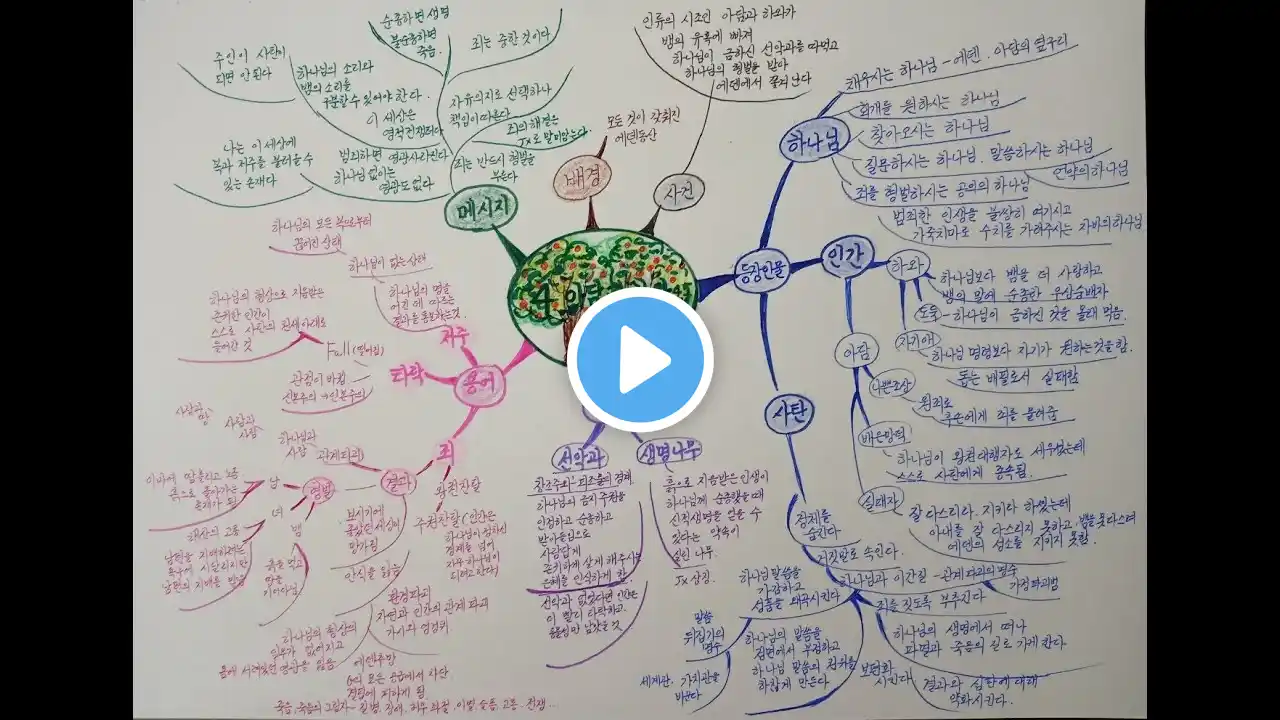 주인이 사탄이
되면 안된다
순종하면 생명
불순종하면
죽음.
죄는 중한 것이다
하나님의 소리와
뱀의 소리를
구분할 수 있어야 한다.
이 세상은
영적전쟁터다
자유의지로 선택하나
책임이 따른다
죄의 해결은
Jx로 말미암는다.
나는 이 세상에
복과 저주를 불러올 수
있는 존재다
범죄하면 영광사라진다
하나님 없이는
영광도 없다
죄는 반드시 형벌을
부른다
메시지
모든 것이 갖춰진
에덴동산
배경
인류의 시조인 아담과 하와가
뱀의 유혹에 빠져
하나님이 금하신 선악과를 따먹고
하나님의 형벌을 받아
에덴에서 쫓겨난다
사건
채우시는 하나님 - 에덴. 아담의 옆구리
회개를 원하시는 하나님
찾아오시는 하나님
질문하시는 하나님. 말씀하시는 하나님
언약의 하나님
죄를 형벌하시는 공의의 하나님
범죄한 인생을 불쌍히 여기시고
가죽치마로 수치를 가려주시는 자비의 하나님
하나님
등장인물
인간
하와
하나님보다 뱀을 더 사랑하고
뱀의 말에 순종한 우상숭배자
도둑 - 하나님이 금하신 것을 몰래 먹음.
자기애
하나님 명령보다 자기가 원하는것을함.
돕는 배필로서 실패함
아담
나쁜조상
원죄로
후손에게 죄를 물려줌
배은망덕
하나님이 왕권대행자로 세우셨는데
스스로 사탄에게 종속됨.
실패자
잘 다스리라. 지키라 하셨는데
아내를 잘 다스리지 못하고, 뱀을 못다스려
에덴의 성소를 지키지 못함.
사탄
정체를
숨긴다
거짓말로 속인다.
하나님과 이간질 - 관계파괴의 명수
가정파괴범
죄를 짓도록 부추긴다
하나님의 생명에서 떠나
파멸과 죽음의 길로 가게 한다.
보편화
시킨다
결과와 심판에 대해
약화시킨다.
하나님말씀을
가감하고
성품을 왜곡시킨다
말씀
뒤집기의
명수
하나님의 말씀을
정면에서 부정하고
하나님 말씀의 권위를
하찮게 만든다
세계관. 가치관을
바꾼다
4.
선악과
창조주와 피조물의 경계
하나님의 금지 주권을
인정하고 순종하고
받아들임으로
사람답게
존귀하게 살게 해주시는
은혜를 인식하게 함.
선악과 없었다면 인간은
더 빨리 타락하고.
생명나무
흙으로 지음받은 인생이
하나님께 순종했을 때
신적생명을 얻을 수
있다는 약속이
실린 나무.
Jx 상징.
용어
저주
하나님의 모든 복으로부터
끊어진 상태
하나님이 없는 상태
하나님의 명을
어긴 데 따르는
결과를 통보하는것.
타락
Fall (떨어짐)
하나님의 형상으로 지음받은
존귀한 인간이
스스로 사탄의 권세 아래로
들어간 것
관점이 바뀜
신본주의 → 인본주의
죄
왕권찬탈
주권찬탈 (인간은
하나님이 정하신
경계를 넘어
자꾸 하나님이
되려고 한다)
결과
관계파괴
하나님과
사람
사람과
사람
형벌
남
여
뱀
해산의 고통
흙을 먹고
배로
기어다님
보시기에
좋았던 세상이
망가짐
안식을 잃음
환경파괴
자연과 인간의 관계 파괴
가시와 엉겅퀴
하나님의 형상의
일부가 없어지고
에덴추방